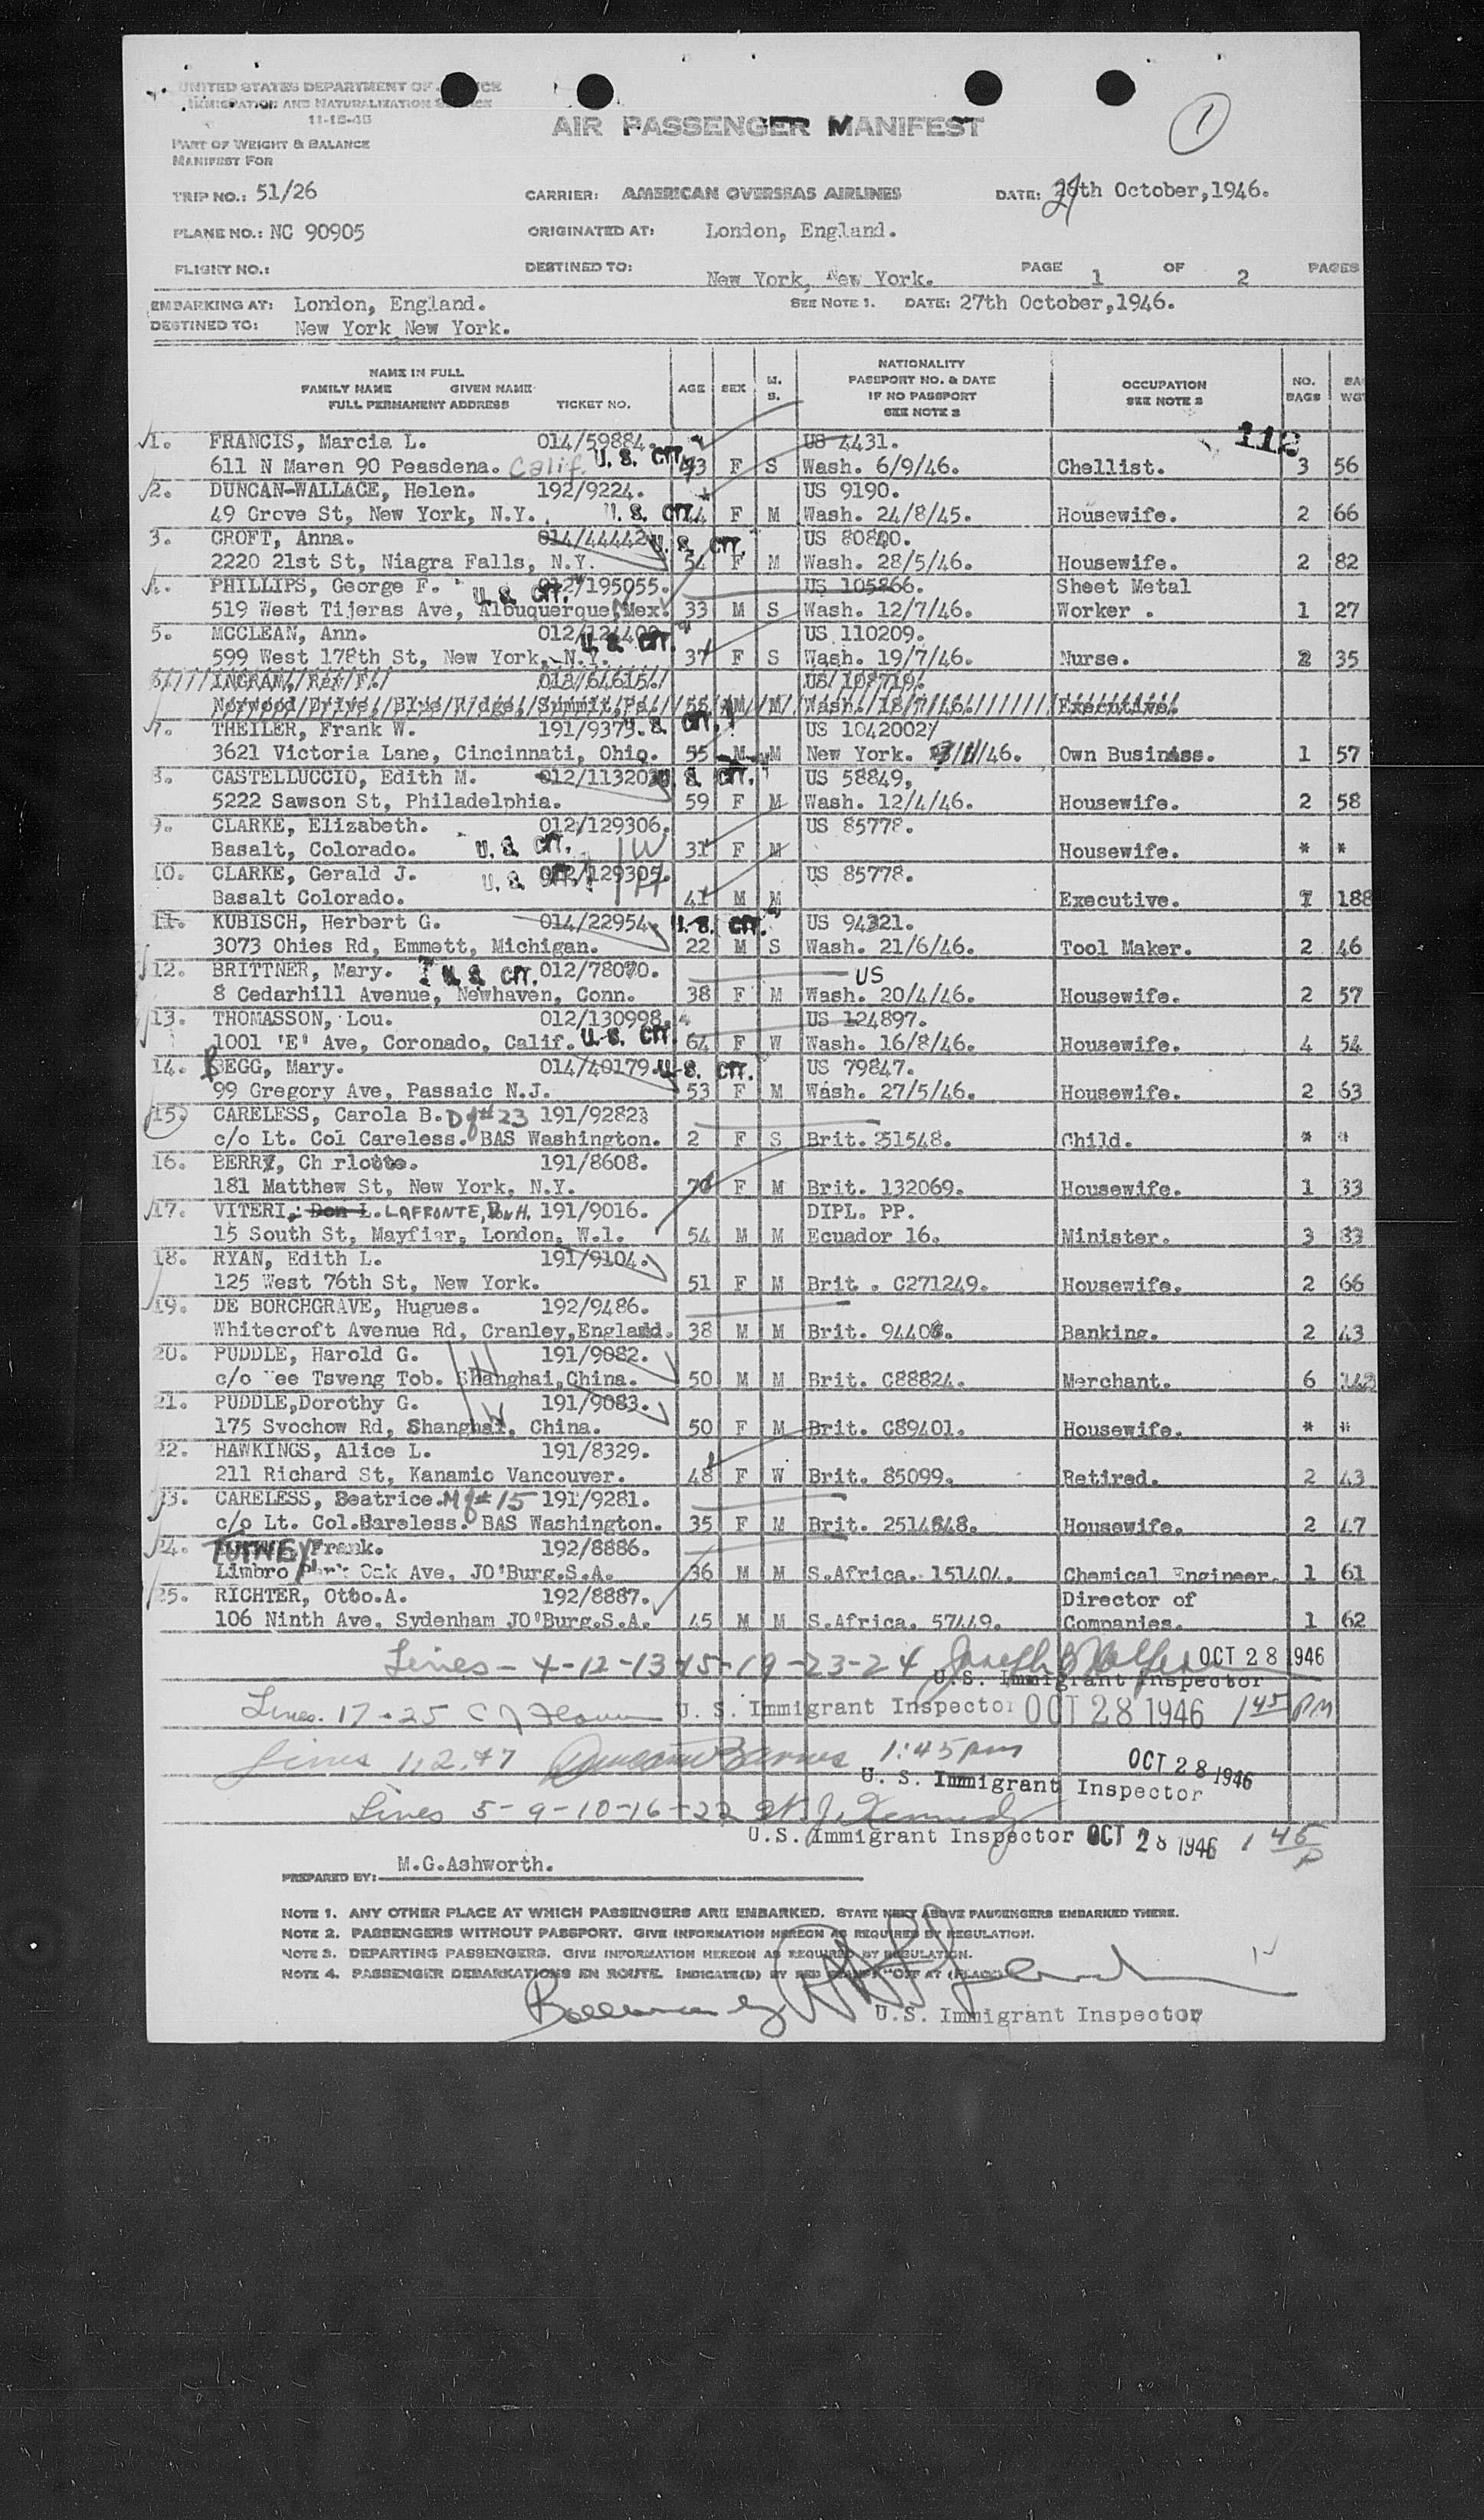 UNITED STATES DEPARTMENT OF
IMMIGRATION AND NATURALIZATION
11-15-45
AIR PASSENGER MANIFEST
1
PART OF WEIGHT & BALANCE
MANIFEST FOR
TRIP NO.: 51/26 CARRIER: AMERICAN OVERSEAS AIRLINES DATE: th October,1946.
PLANE NO.: NC 90905 ORIGINATED AT: London, England.
FLIGHT NO.: DESTINED TO: New York, New York. PAGE 1 OF 2 PAGES
EMBARKING AT: London, England. SEE NOTE 1. DATE: 27th October,1946.
DESTINED TO: New York New York.
NAME IN FULL
FAMILY NAME GIVEN NAME
FULL PERMANENT ADDRESS TICKET NO.
AGE SEX M. S.
NATIONALITY
PASSPORT NO. & DATE
IF NO PASSPORT
SEE NOTE 3
OCCUPATION
SEE NOTE 2
NO. BAGS
BA WGT
112
1. FRANCIS, Marcia L. 014/59884. US 4431.
611 N Maren 90 Peasdena. Calif. U. S. CIT. F S Wash. 6/9/46. Chellist. 3 56
2. DUNCAN-WALLACE, Helen. 192/9224. US 9190.
49 Grove St, New York, N.Y. U. S. CIT. F M Wash. 24/8/45. Housewife. 2 66
3. CROFT, Anna. 014/44442 U. S. CIT. US 80800.
2220 21st St, Niagra Falls, N.Y. 54 F M Wash. 28/5/46. Housewife. 2 82
4. PHILLIPS, George F. U. S. CIT. 012/195055. US 105866. Sheet Metal
519 West Tijeras Ave, Albuquerque, Mex. 33 M S Wash. 12/7/46. Worker . 1 27
5. MCCLEAN, Ann. U. S. CIT. US 110209.
599 West 178th St, New York, N.Y. 37 F S Wash. 19/7/46. Nurse. 2 35
6. INGRAM, Rex F. 012/64615. US 108719.
Norwood Drive, Blue Ridge, Summit, Pa. 55 M M Wash. 18/7/46. Executive.
7. THEILER, Frank W. 191/9373. U. S. CIT. US 1042002
3621 Victoria Lane, Cincinnati, Ohio. 55 M M New York. /46. Own Business. 1 57
8. CASTELLUCCIO, Edith M. 012/113202 U. S. CIT. US 58849,
5222 Sawson St, Philadelphia. 59 F M Wash. 12/4/46. Housewife. 2 58
9. CLARKE, Elizabeth. 012/129306. US 85778.
Basalt, Colorado. U. S. CIT. W 31 F M Housewife. * *
10. CLARKE, Gerald J. U. S. CIT. 012/129305. H US 85778.
Basalt Colorado. 41 M M Executive. 7 188
11. KUBISCH, Herbert G. 014/22954. U. S. CIT. US 94321.
3073 Ohies Rd, Emmett, Michigan. 22 M S Wash. 21/6/46. Tool Maker. 2 46
12. BRITTNER, Mary. U. S. CIT. 012/78070. US
8 Cedarhill Avenue, Newhaven, Conn. 38 F M Wash. 20/4/46. Housewife. 2 57
13. THOMASSON, Lou. 012/130998. US 124897.
1001 'E' Ave, Coronado, Calif. U. S. CIT. 64 F W Wash. 16/8/46. Housewife. 4 54
14. BEGG, Mary. 014/40179. U. S. CIT. US 79847.
99 Gregory Ave, Passaic N.J. 53 F M Wash. 27/5/46. Housewife. 2 63
15. CARELESS, Carola B. Df#23 191/9282
c/o Lt. Col Careless. BAS Washington. 2 F S Brit. 251548. Child. * *
16. BERRY, Ch rlotte. 191/8608.
181 Matthew St, New York, N.Y. 70 F M Brit. 132069. Housewife. 1 33
17. VITERI, Don L. LAFRONTE, Don H. 191/9016. DIPL. PP.
15 South St, Mayfiar, London, W.1. 54 M M Ecuador 16. Minister. 3 33
18. RYAN, Edith L. 191/9104.
125 West 76th St, New York. 51 F M Brit . C271249. Housewife. 2 66
19. DE BORCHGRAVE, Hugues. 192/9486.
Whitecroft Avenue Rd, Cranley,England. 38 M M Brit. 94406. Banking. 2 43
20. PUDDLE, Harold G. 191/9082.
c/o ee Tsveng Tob. Shanghai,China. H 50 M M Brit. C88824. Merchant. 6
21. PUDDLE,Dorothy G. 191/9083.
175 Svochow Rd, Shanghai, China. W 50 F M Brit. C89401. Housewife. * *
22. HAWKINGS, Alice L. 191/8329.
211 Richard St, Kanamic Vancouver. 48 F W Brit. 85099. Retired. 2 43
23. CARELESS, Beatrice. Mf#15 191/9281.
c/o Lt. Col.Bareless. BAS Washington. 35 F M Brit. 2514648. Housewife. 2 47
24. TURNEY, Frank. 192/8886.
Limbro Park Oak Ave, JO'Burg.S.A. 36 M M S.Africa. 151404. Chemical Engineer. 1 61
25. RICHTER, Otto.A. 192/8887. Director of
106 Ninth Ave, Sydenham JO'Burg.S.A. 45 M M S.Africa. 57449. Companies. 1 62
Lines - 4-12-13-15-19-23-24 Joseph OCT 28 1946
U.S. Immigrant Inspector
Lines. 17-25 U. S. Immigrant Inspector OCT 28 1946 1 45 PM
Lines 1,2,+7 Duncan Barnes 1:45pm OCT 28 1946
U. S. Immigrant Inspector
Lines 5-9-10-16-22 J. Kennedy
U.S. Immigrant Inspector OCT 28 1946 1 45 P
PREPARED BY: M.G.Ashworth.
NOTE 1. ANY OTHER PLACE AT WHICH PASSENGERS ARE EMBARKED. STATE NEXT ABOVE PASSENGERS EMBARKED THERE.
NOTE 2. PASSENGERS WITHOUT PASSPORT. GIVE INFORMATION HEREON AS REQUIRED BY REGULATION.
NOTE 3. DEPARTING PASSENGERS. GIVE INFORMATION HEREON AS REQUIRED BY REGULATION.
NOTE 4. PASSENGER DEBARKATIONS EN ROUTE. INDICATE(D) BY RED "OFF AT (PLACE)
U.S. Immigrant Inspector